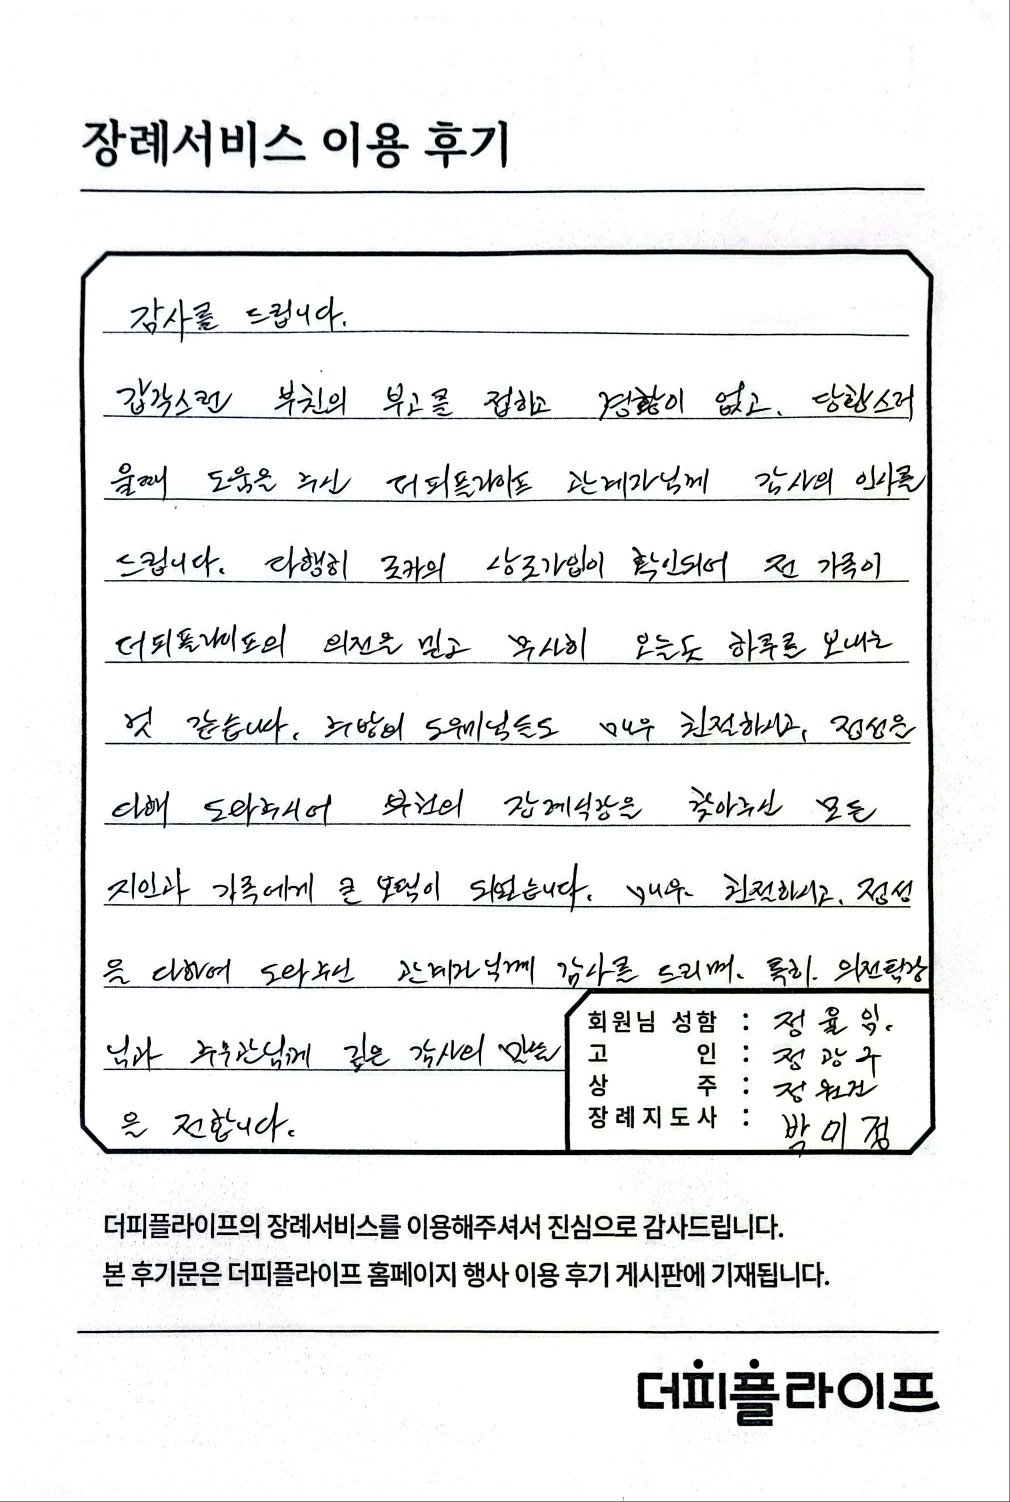 장례서비스 이용 후기
감사를 드립니다.
갑작스런 부친의 부고를 접하고 경황이 없고, 당황스러
울때 도움을 주신 더피플라이프 관계자님께 감사의 인사를
드립니다. 다행히 조카의 상조가입이 확인되어 전 가족이
더피플라이프의 의전을 믿고 무사히 오늘도 하루를 보내는
것 같습니다. 주방의 도우미님들도 매우 친절하시고, 정성을
다해 도와주시어 부친의 장례식장을 찾아주신 모든
지인과 가족에게 큰 보탬이 되었습니다. 매우 친절하시고, 정성
을 다하여 도와주신 관계자님께 감사를 드리며. 특히. 의전팀장
님과 주무관님께 깊은 감사의 말씀
을 전합니다.
회원님 성함 : 정율
고 인 : 정광수
상 주 : 정원진
장례지도사 : 박미정
더피플라이프의 장례서비스를 이용해주셔서 진심으로 감사드립니다.
본 후기문은 더피플라이프 홈페이지 행사 이용 후기 게시판에 기재됩니다.
더피플라이프